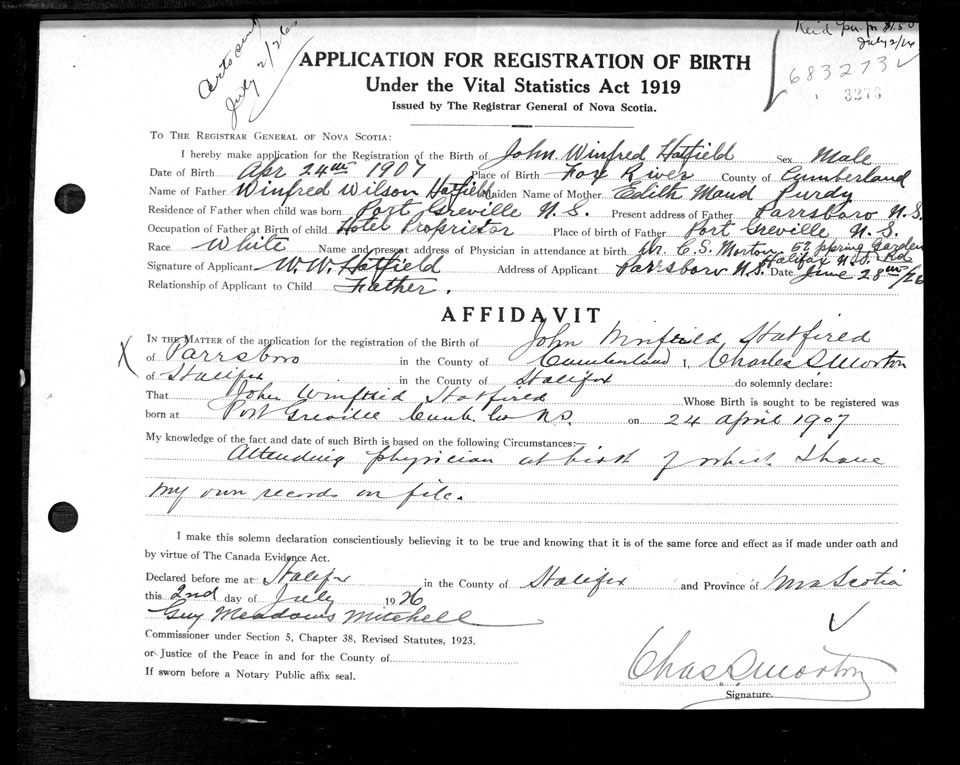 Certs sent
July 2/26
July 2/26
683273
3273
APPLICATION FOR REGISTRATION OF BIRTH
Under the Vital Statistics Act 1919
Issued by The Registrar General of Nova Scotia.
TO THE REGISTRAR GENERAL OF NOVA SCOTIA:
I hereby make application for the Registration of the Birth of John Winfred Hatfield Sex Male
Date of Birth Apr 24th 1907 Place of Birth Fox River County of Cumberland
Name of Father Winfred Wilson Hatfield Maiden Name of Mother Edith Maud Purdy
Residence of Father when child was born Port Greville N.S. Present address of Father Parrsboro N.S.
Occupation of Father at Birth of child Hotel Proprietor Place of birth of Father Port Greville N.S.
Race White Name and present address of Physician in attendance at birth Dr. C.S. Morton 52 Spring Garden Rd. Halifax N.S.
Signature of Applicant W.W. Hatfield Address of Applicant Parrsboro N.S. Date June 28th/26
Relationship of Applicant to Child Father.
AFFIDAVIT
IN THE MATTER of the application for the registration of the Birth of John Winfield Hatfield
X of Parrsboro in the County of Cumberland I, Charles S Morton
of Halifax in the County of Halifax do solemnly declare:
That John Winfield Hatfield Whose Birth is sought to be registered was
born at Port Greville Cumb. Co N.S. on 24 April 1907
My knowledge of the fact and date of such Birth is based on the following Circumstances:—
Attending physician at birth of which I have
my own records on file.
I make this solemn declaration conscientiously believing it to be true and knowing that it is of the same force and effect as if made under oath and
by virtue of The Canada Evidence Act.
Declared before me at Halifax in the County of Halifax and Province of Nova Scotia
this 2nd day of July 1926
Guy Meadows Mitchell
Commissioner under Section 5, Chapter 38, Revised Statutes, 1923.
or Justice of the Peace in and for the County of
If sworn before a Notary Public affix seal.
Chas. S. Morton
Signature.